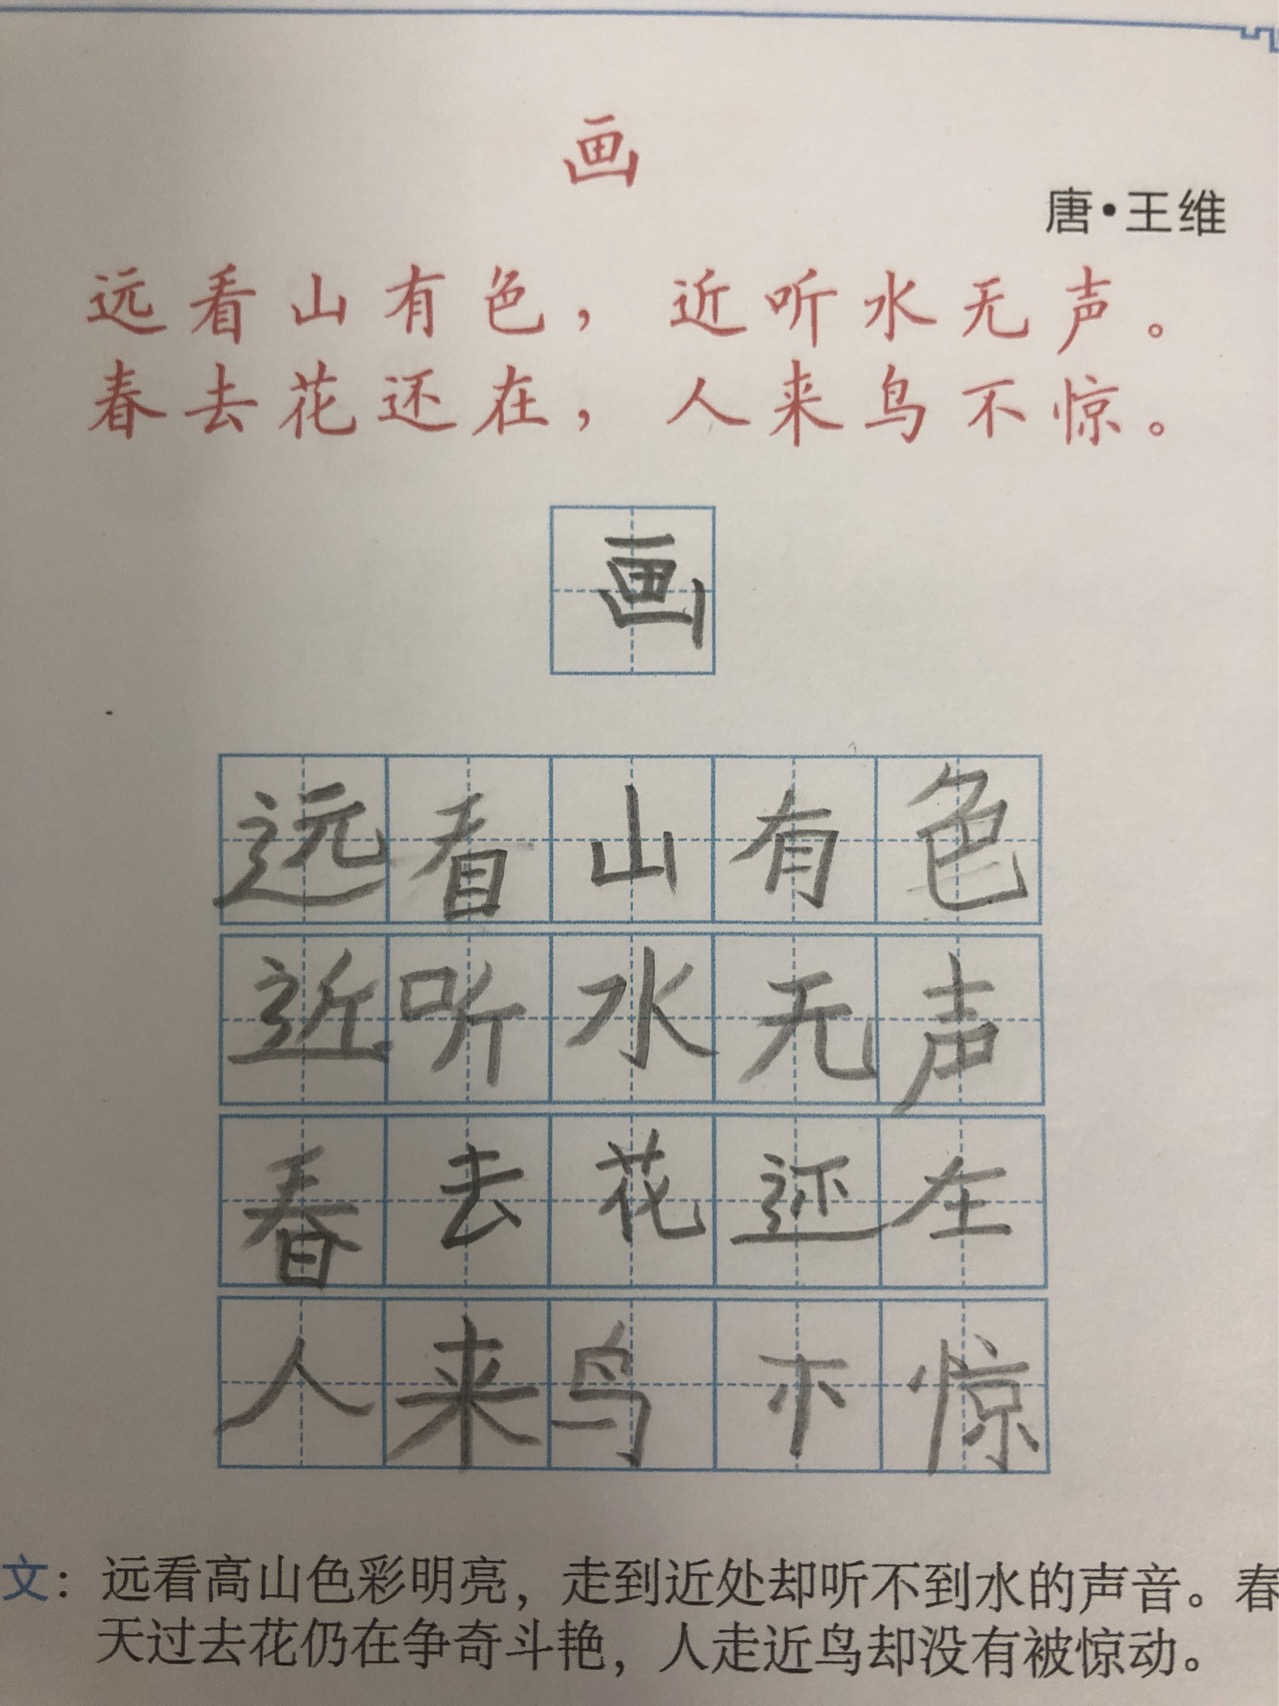 画
唐·王维
远看山有色，近听水无声。
春去花还在，人来鸟不惊。
画
远看山有色
近听水无声
春去花还在
人来鸟不惊
文：远看高山色彩明亮，走到近处却听不到水的声音。春
天过去花仍在争奇斗艳，人走近鸟却没有被惊动。